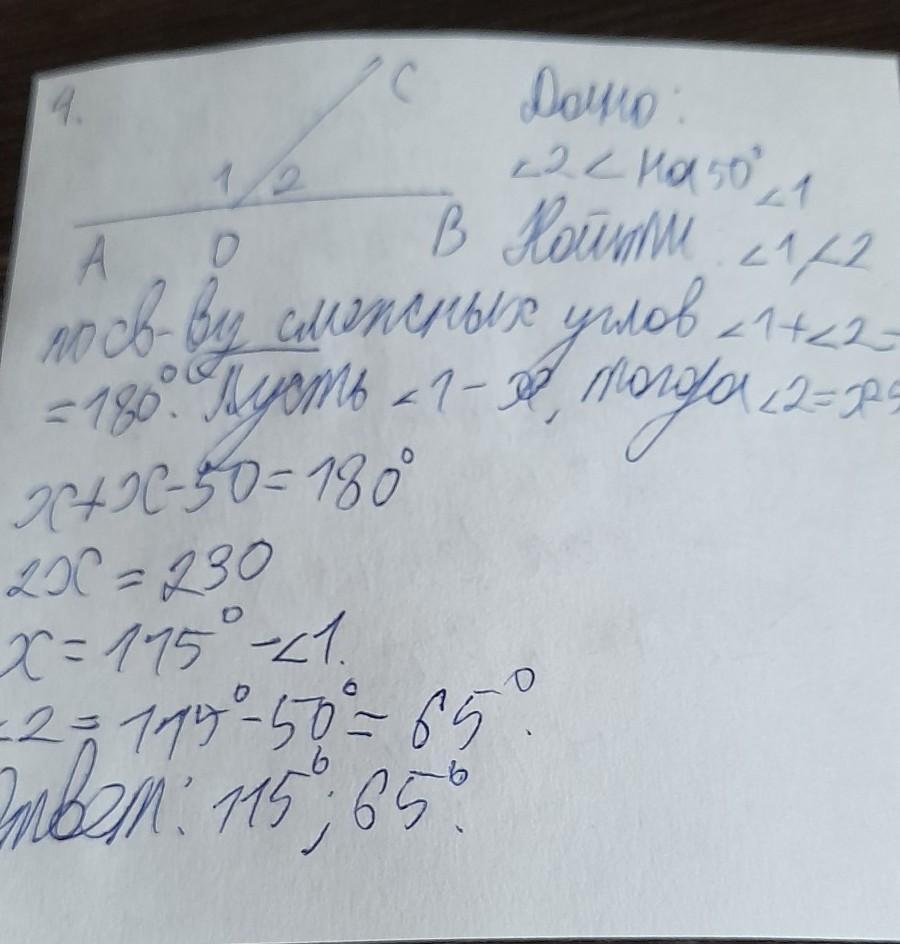 4.
C
1 2
A O B
Дано:
∠2 < на 50° ∠1
Найти ∠1, ∠2
по св-ву смежных углов ∠1+∠2=
=180°. Пусть ∠1 - х, тогда ∠2=х-5
х+х-50=180°
2х=230
х=115° -∠1.
∠2=115°-50°=65°.
Ответ: 115°; 65°.